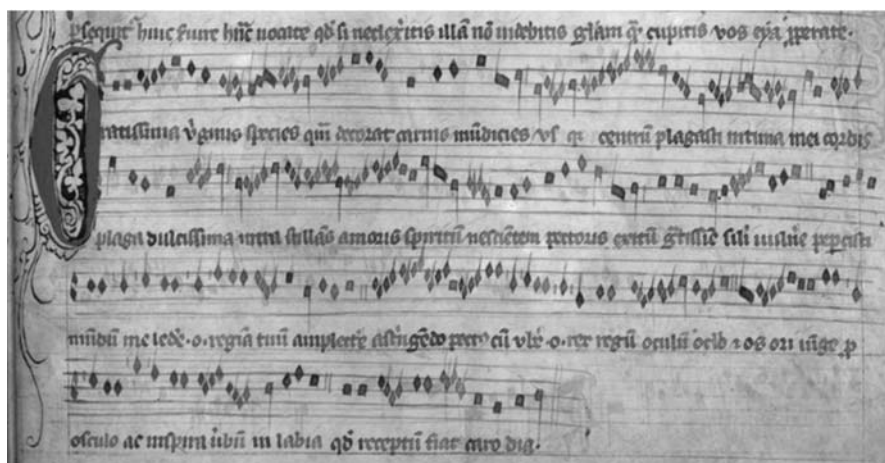 psequit᷑ huic huic hūc uocate qd̓ si neclex̓itis illā nō uidebitis gl̄am qͣ cupitis vos eya p̱perate.
Gratissima v̓ginis species quā decorat carnis mūdicies vsqꝫ centrū plagasti intima mei cordis
plaga dulcissima intra stillās amoris spiritū nesciētem pectoris exitū gͣtissīe sīli vulnͤe peperisti
mūdū me led̓e .o. regīa tuū amplect̓e astⁱngēdo pectꝰ cū vb̓e .o. rex regū oculū oclo ⁊ os ori iūge p̱
osculo ac inspira v̓bū in labia qd̓ receptū fiat caro dia.